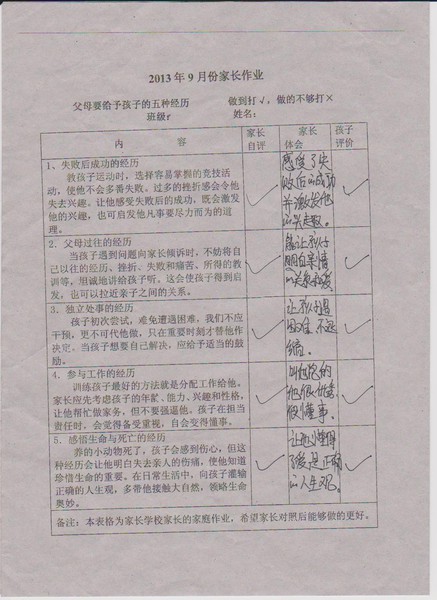 2013 年 9 月份家长作业
父母要给予孩子的五种经历 做到打√，做的不够打×
班级r 姓名：
内 容
家长
自评
家长
体会
孩子
评价
1、失败后成功的经历
教孩子运动时，选择容易掌握的竞技活
动，使他不会多番失败。过多的挫折感会令他
失去兴趣。让他感受失败后的成功，既会激发
他的兴趣，也可启发他凡事要尽力而为的道
理。
√
感受了失
败后的成功
并激发他
√
2．父母过往的经历
当孩子遇到问题向家长倾诉时，不妨将自
己以往的经历、挫折、失败和痛苦、所得的教
训等，坦诚地讲给孩子听。这会使孩子得到启
发，也可以拉近亲子之间的关系。
√
能让孩子
明白亲情
√
3．独立处事的经历
孩子初次尝试，难免遭遇困难，我们不应
干预，更不可代他做，只在重要时刻才替他作
决定。当孩子想要自己解决，应给予适当的鼓
励。
√
让孩子遇
困难不退
缩。
√
4．参与工作的经历
训练孩子最好的方法就是分配工作给他。
家长应先考虑孩子的年龄、能力、兴趣和性格，
让他帮忙做家务，但不要强逼他。孩子在担当
责任时，会觉得备受重视，自会变得懂事。
√
很懂事。
√
5．感悟生命与死亡的经历
养的小动物死了，孩子会感到伤心，但这
种经历会让他明白失去亲人的伤痛，使他知道
珍惜生命的重要。在日常生活中，向孩子灌输
正确的人生观，多带他接触大自然，领略生命
奥妙。
√
让他懂得
了爱是正确
的人生观。
√
备注：本表格为家长学校家长的家庭作业，希望家长对照后能够做的更好。